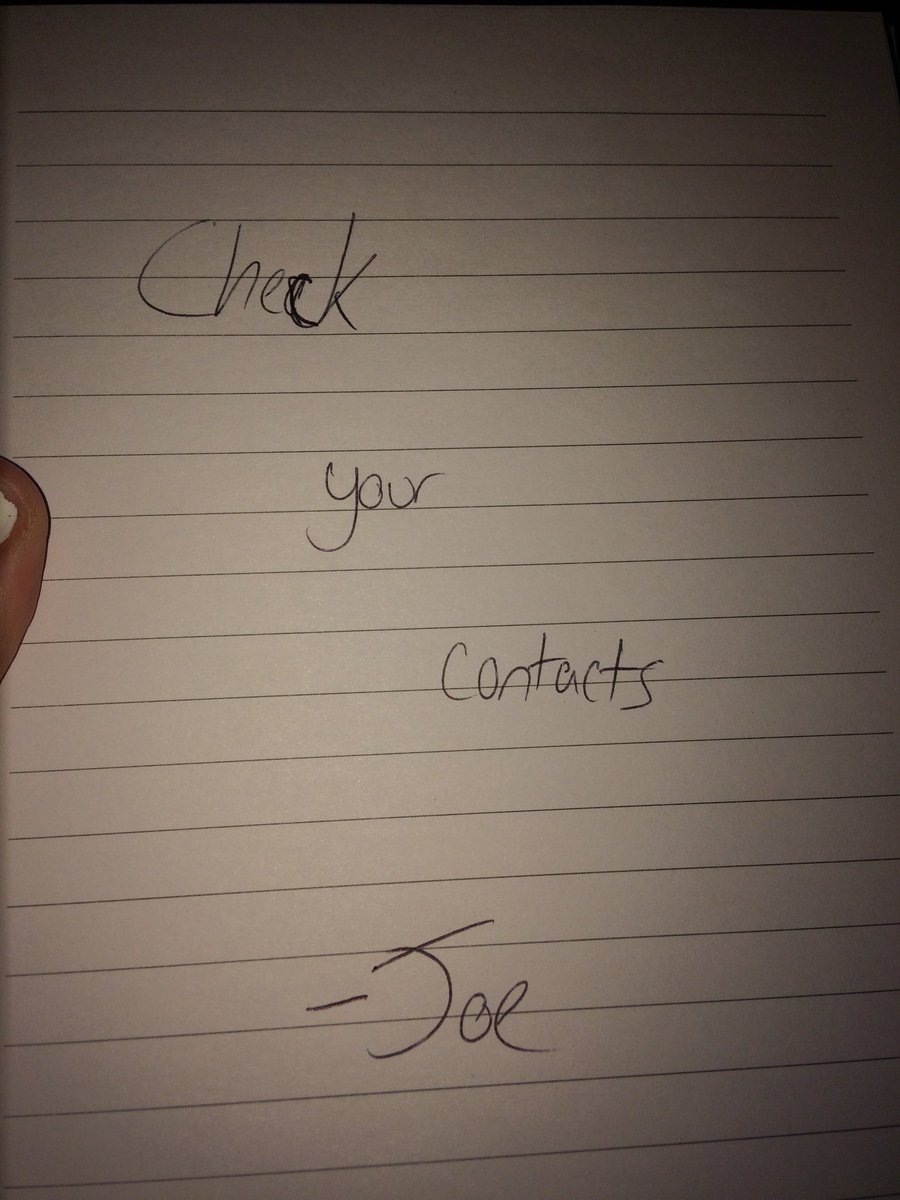 Check
your
contacts
-Joe